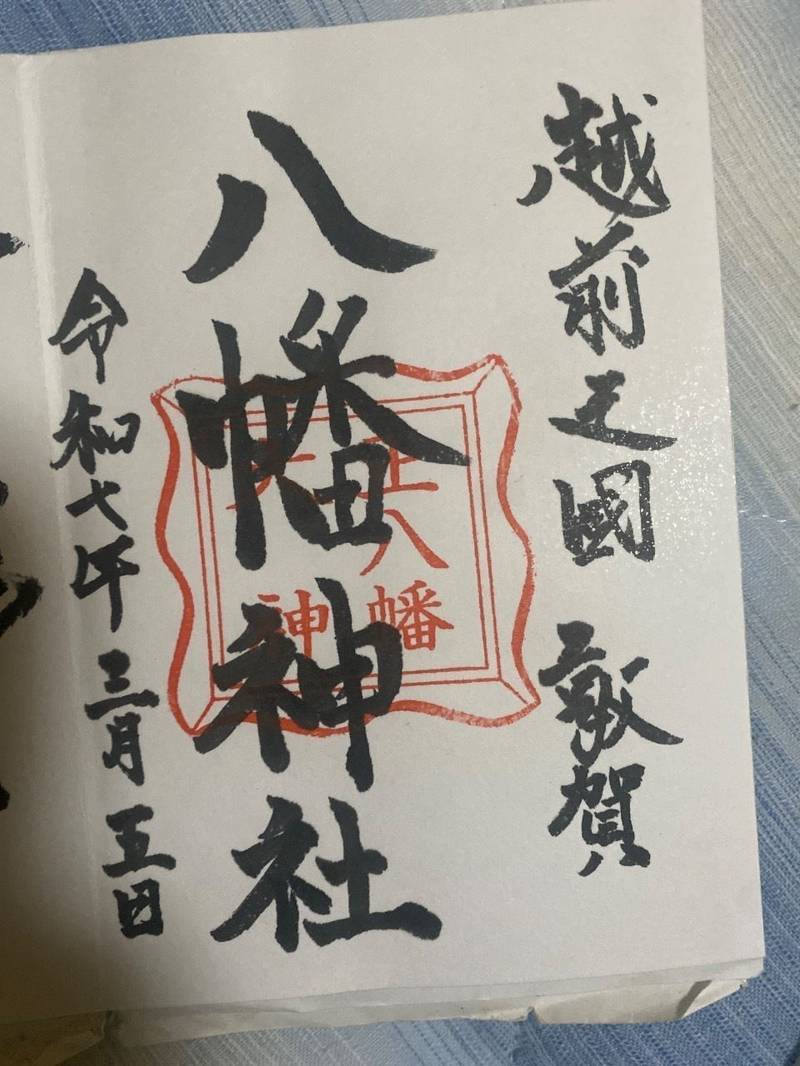 越前之國 敦賀
八幡神社
令和七年三月五日
正八幡
神